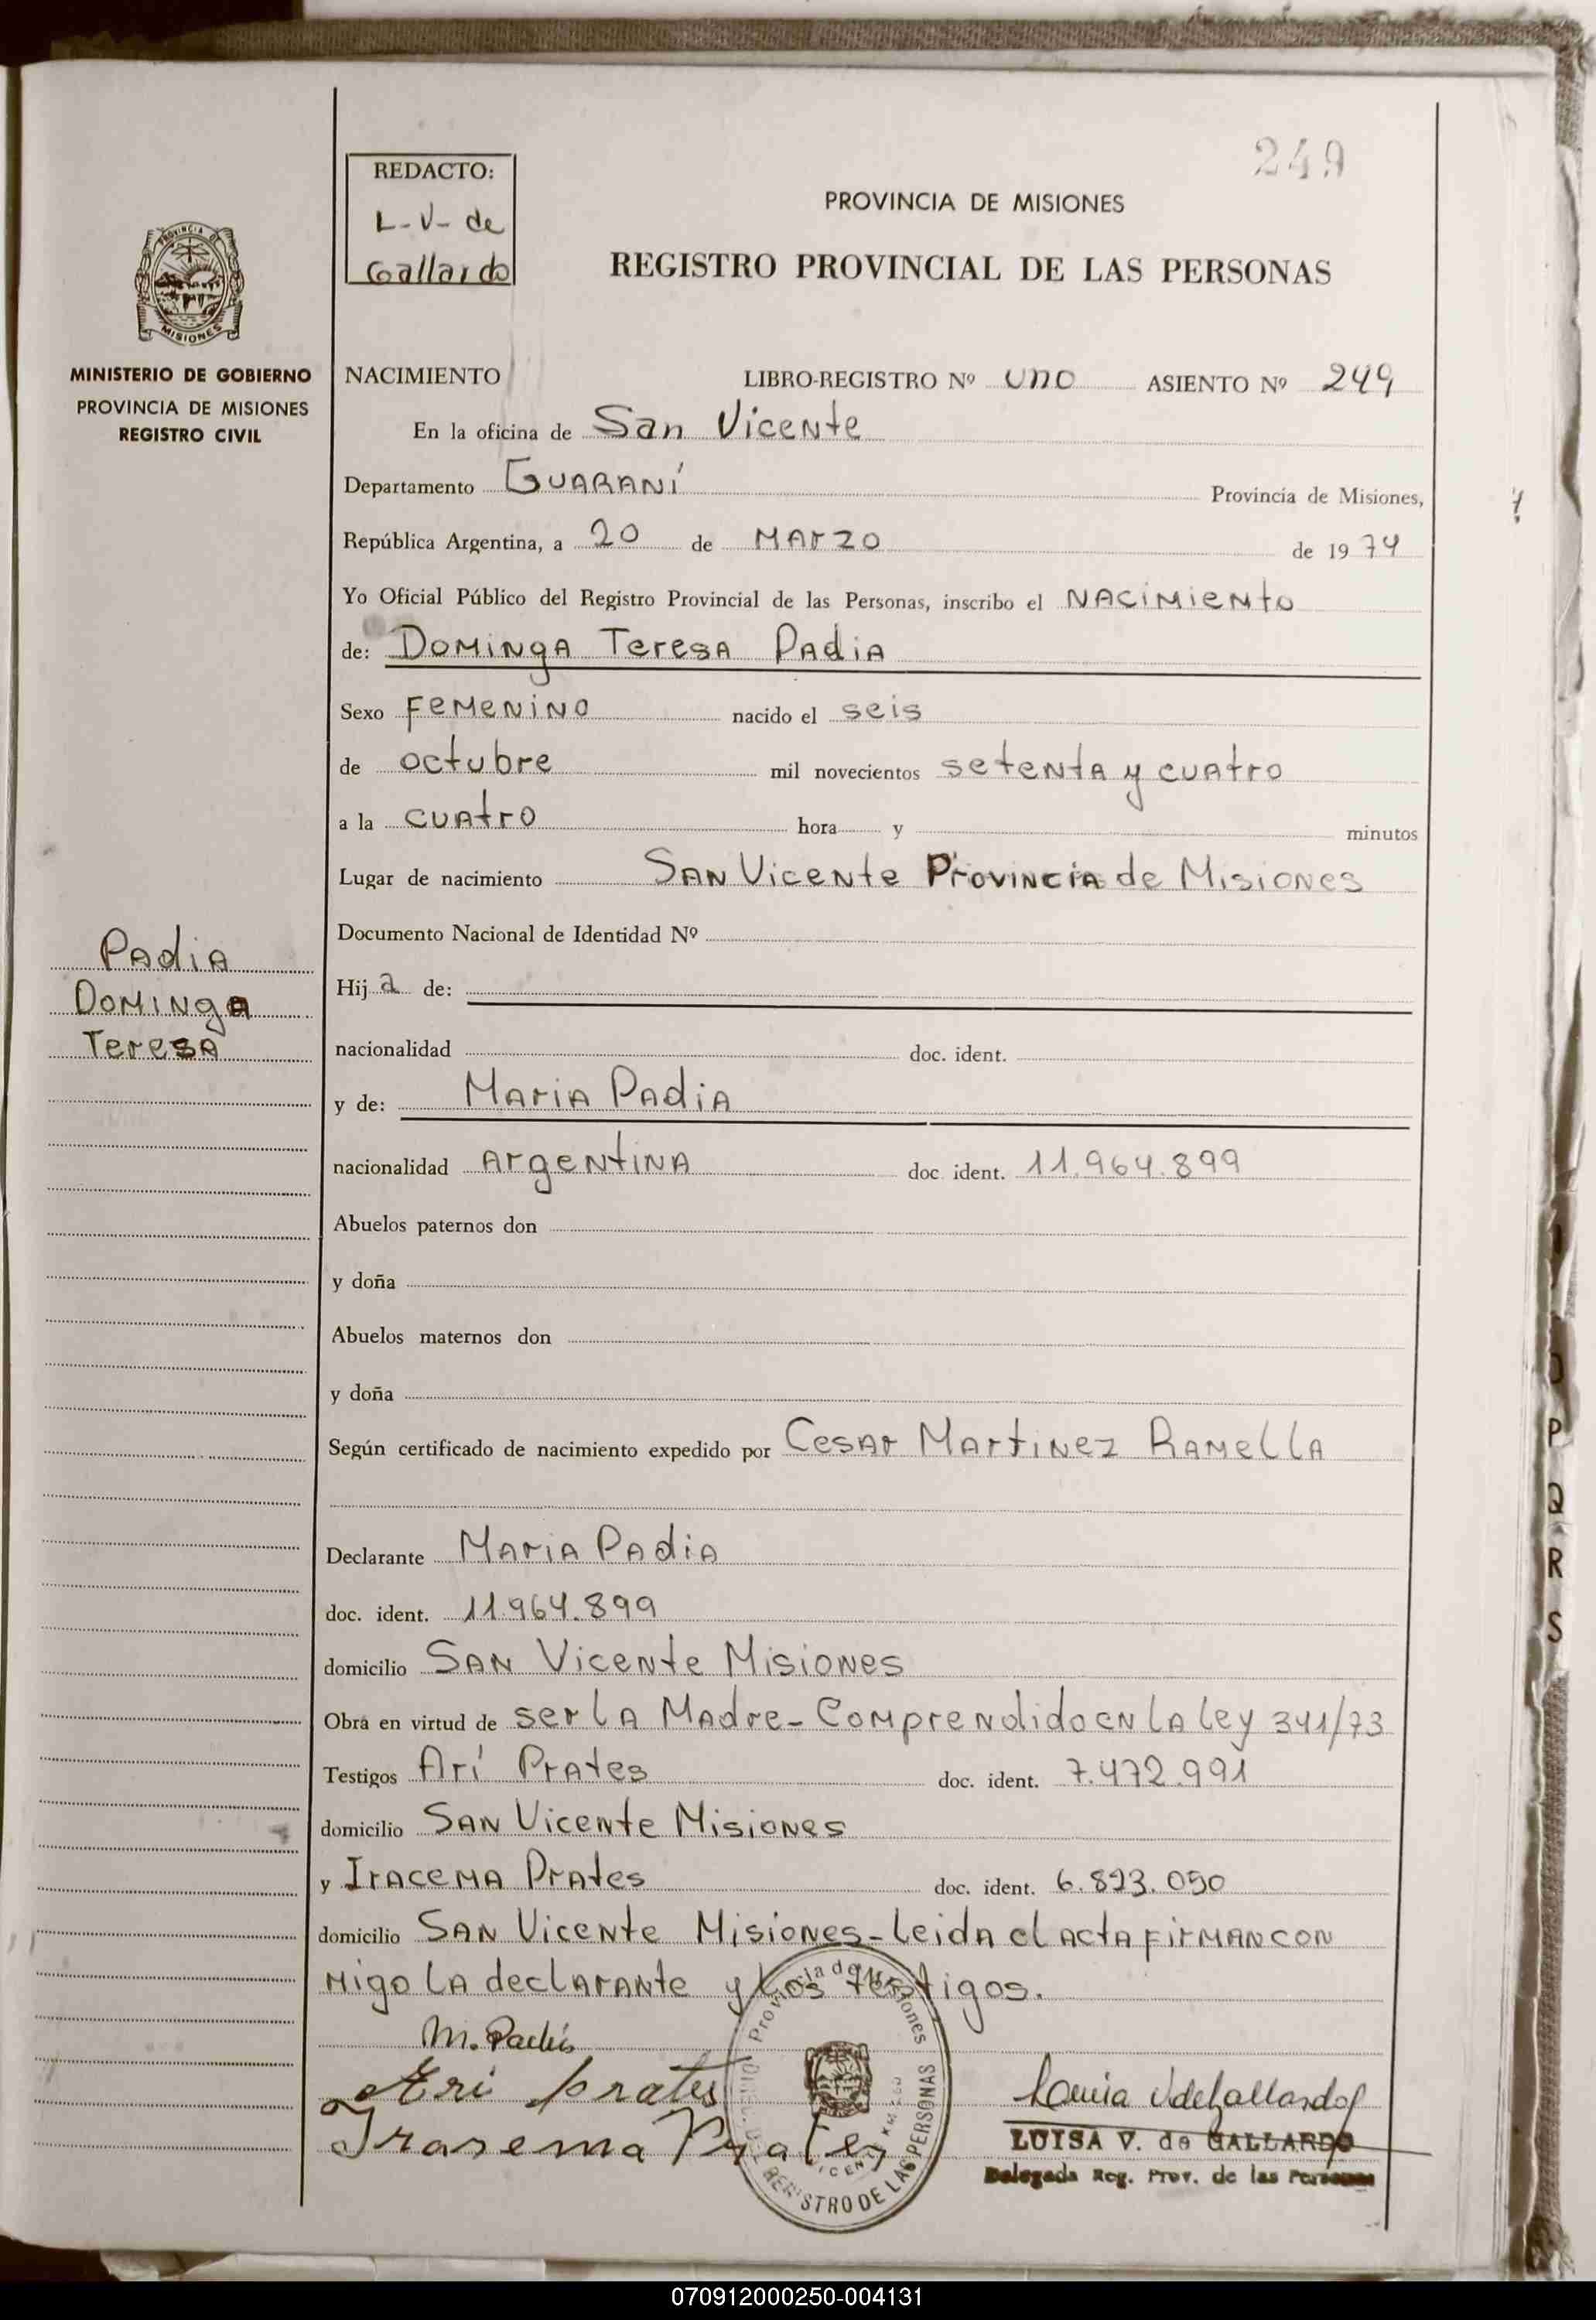 249
REDACTO:
L-V- de
Gallardo
PROVINCIA DE MISIONES
REGISTRO PROVINCIAL DE LAS PERSONAS
PROVINCIA DE
MISIONES
MINISTERIO DE GOBIERNO
PROVINCIA DE MISIONES
REGISTRO CIVIL
NACIMIENTO LIBRO-REGISTRO Nº uno ASIENTO Nº 249
En la oficina de San Vicente
Departamento GUARANÍ Provincia de Misiones,
República Argentina, a 20 de MArzo de 1974
Yo Oficial Público del Registro Provincial de las Personas, inscribo el NACiMieNto
de: DOMiNgA TeresA PAdiA
Sexo FeMeNiNO nacido el seis
de octubre mil novecientos seteNtA y cuAtro
a la cuAtrO hora y minutos
Lugar de nacimiento SAN ViceNte ProviNciA de MisioNes
Documento Nacional de Identidad Nº
PAdiA
DOMiNgA
TeresA
Hija de:
nacionalidad doc. ident.
y de: MAriA PAdiA
nacionalidad ArgeNtiNA doc. ident. 11.964.899
Abuelos paternos don
y doña
Abuelos maternos don
y doña
Según certificado de nacimiento expedido por CesAr MArtiNez RAMellA
Declarante MAriA PAdiA
doc. ident. 11.964.899
domicilio SAN ViceNte MisioNes
Obra en virtud de ser lA MAdre- CoMpreNdido eN lA ley 341/73
Testigos Arí PrAtes doc. ident. 7.472.991
domicilio SAN ViceNte MisioNes
y IrAceMA PrAtes doc. ident. 6.823.050
domicilio SAN ViceNte MisioNes- leidA el ActA firMAN coN
Migo lA declArANte y los testigos.
M. Padia
Ari prates
Irasema Prates
Provincia de Misiones
REGISTRO DE LAS PERSONAS
Louisa V de Gallardo
LUISA V. de GALLARDO
Delegada Reg. Prov. de las Personas
P
Q
R
S
070912000250-004131